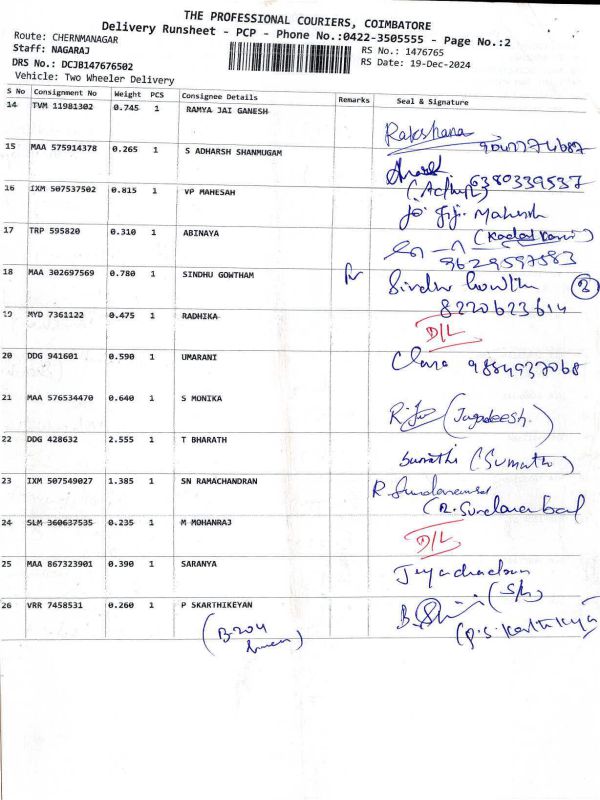 THE PROFESSIONAL COURIERS, COIMBATORE
Delivery Runsheet - PCP - Phone No.:0422-3505555 - Page No.:2
Route: CHERNMANAGAR
RS No.: 1476765
Staff: NAGARAJ
RS Date: 19-Dec-2024
DRS No.: DCJB147676502
Vehicle: Two Wheeler Delivery
S No Consignment No Weight PCS Consignee Details Remarks Seal & Signature
14 TVM 11981302 0.745 1 RAMYA JAI GANESH
Rakshana
15 MAA 575914378 0.265 1 S ADHARSH SHANMUGAM
6380339537
16 IXM 507537502 0.815 1 VP MAHESAH
Jiji Mahesh
17 TRP 595820 0.310 1 ABINAYA
9629597583
18 MAA 302697569 0.780 1 SINDHU GOWTHAM
Sindhu Gowtham
8220623614
19 MYD 7361122 0.475 1 RADHIKA
D/L
20 DDG 941601 0.590 1 UMARANI
9884937068
21 MAA 576534470 0.640 1 S MONIKA
(Jagadeesh)
22 DDG 428632 2.555 1 T BHARATH
Sumathi (Sumathi)
23 IXM 507549027 1.385 1 SN RAMACHANDRAN
24 SLM 360637535 0.235 1 M MOHANRAJ
D/L
25 MAA 867323901 0.390 1 SARANYA
26 VRR 7458531 0.260 1 P SKARTHIKEYAN
(P.S. Karthikeya
B-204